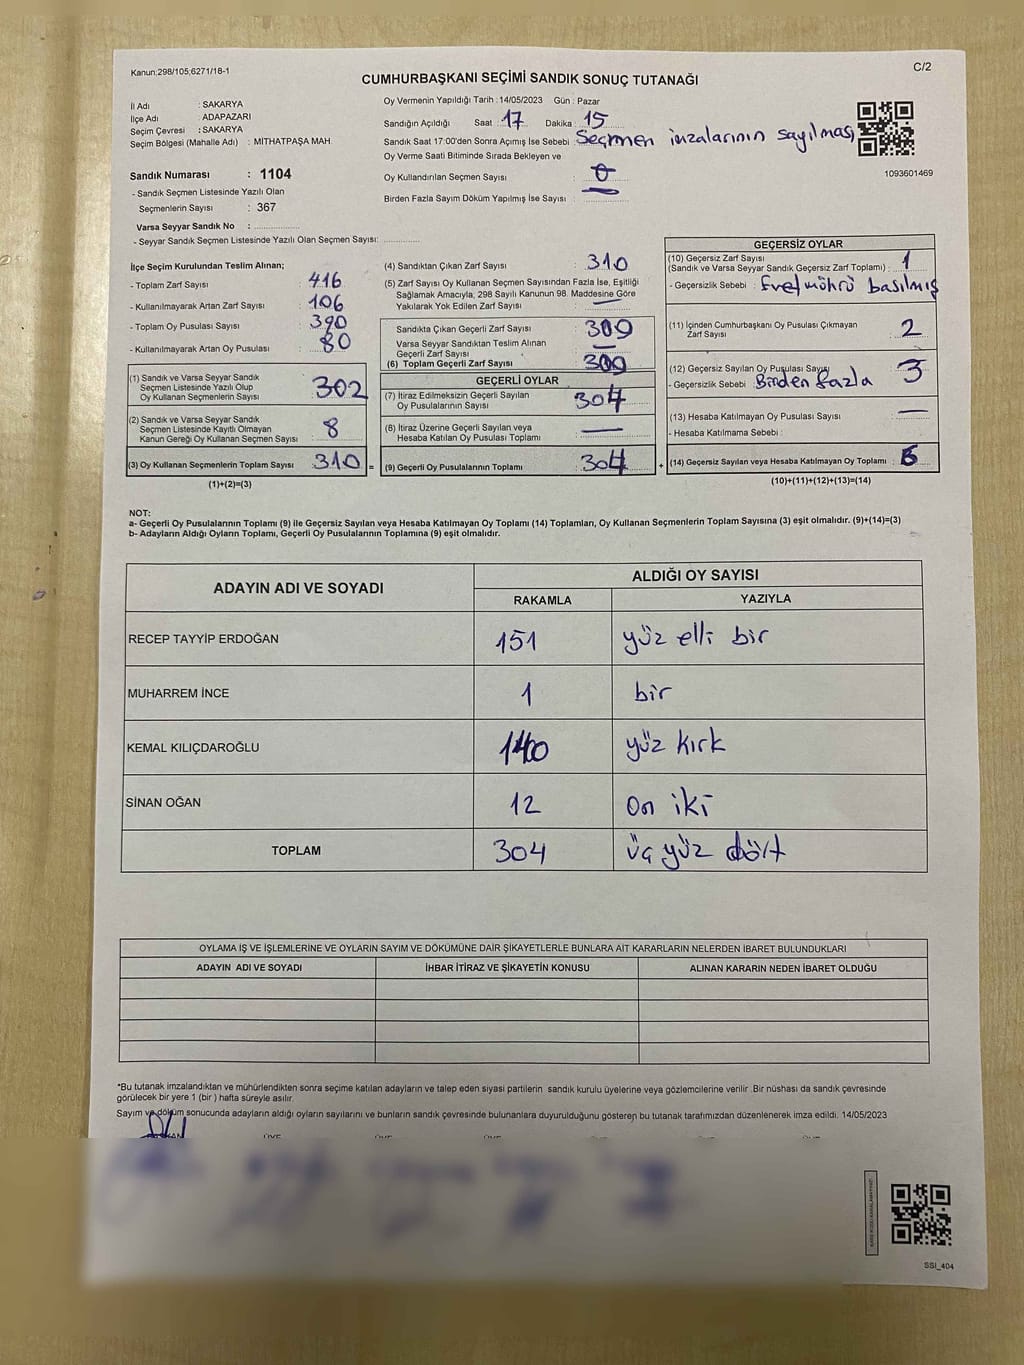 Kanun;298/105;6271/18-1
C/2
CUMHURBAŞKANI SEÇİMİ SANDIK SONUÇ TUTANAĞI
İl Adı : SAKARYA
İlçe Adı : ADAPAZARI
Seçim Çevresi : SAKARYA
Seçim Bölgesi (Mahalle Adı) : MİTHATPAŞA MAH.
Sandık Numarası : 1104
- Sandık Seçmen Listesinde Yazılı Olan
Seçmenlerin Sayısı : 367
Varsa Seyyar Sandık No :
- Seyyar Sandık Seçmen Listesinde Yazılı Olan Seçmen Sayısı:
Oy Vermenin Yapıldığı Tarih :14/05/2023 Gün : Pazar
Sandığın Açıldığı Saat : 17 Dakika : 15
Sandık Saat 17:00'den Sonra Açımış İse Sebebi : Seçmen imzalarının sayılması
Oy Verme Saati Bitiminde Sırada Bekleyen ve
Oy Kullandırılan Seçmen Sayısı : 0
Birden Fazla Sayım Döküm Yapılmış İse Sayısı :
1093601469
İlçe Seçim Kurulundan Teslim Alınan;
- Toplam Zarf Sayısı : 416
- Kullanılmayarak Artan Zarf Sayısı : 106
- Toplam Oy Pusulası Sayısı : 390
- Kullanılmayarak Artan Oy Pusulası : 80
(1) Sandık ve Varsa Seyyar Sandık
Seçmen Listesinde Yazılı Olup
Oy Kullanan Seçmenlerin Sayısı : 302
(2) Sandık ve Varsa Seyyar Sandık
Seçmen Listesinde Kayıtlı Olmayan
Kanun Gereği Oy Kullanan Seçmen Sayısı : 8
(3) Oy Kullanan Seçmenlerin Toplam Sayısı : 310 =
(1)+(2)=(3)
(4) Sandıktan Çıkan Zarf Sayısı : 310
(5) Zarf Sayısı Oy Kullanan Seçmen Sayısından Fazla İse, Eşitliği
Sağlamak Amacıyla, 298 Sayılı Kanunun 98. Maddesine Göre
Yakılarak Yok Edilen Zarf Sayısı : —
Sandıkta Çıkan Geçerli Zarf Sayısı : 309
Varsa Seyyar Sandıktan Teslim Alınan
Geçerli Zarf Sayısı : —
(6) Toplam Geçerli Zarf Sayısı : 309
GEÇERLİ OYLAR
(7) İtiraz Edilmeksizin Geçerli Sayılan
Oy Pusulalarının Sayısı : 304
(8) İtiraz Üzerine Geçerli Sayılan veya
Hesaba Katılan Oy Pusulası Toplamı : —
(9) Geçerli Oy Pusulalarının Toplamı : 304 +
GEÇERSİZ OYLAR
(10) Geçersiz Zarf Sayısı
(Sandık ve Varsa Seyyar Sandık Geçersiz Zarf Toplamı) : 1
- Geçersizlik Sebebi : Evet mührü basılmış
(11) İçinden Cumhurbaşkanı Oy Pusulası Çıkmayan
Zarf Sayısı : 2
(12) Geçersiz Sayılan Oy Pusulası Sayısı : 3
- Geçersizlik Sebebi : Birden fazla
(13) Hesaba Katılmayan Oy Pusulası Sayısı : —
- Hesaba Katılmama Sebebi :
(14) Geçersiz Sayılan veya Hesaba Katılmayan Oy Toplamı : 6
(10)+(11)+(12)+(13)=(14)
NOT:
a- Geçerli Oy Pusulalarının Toplamı (9) ile Geçersiz Sayılan veya Hesaba Katılmayan Oy Toplamı (14) Toplamları, Oy Kullanan Seçmenlerin Toplam Sayısına (3) eşit olmalıdır. (9)+(14)=(3)
b- Adayların Aldığı Oyların Toplamı, Geçerli Oy Pusulalarının Toplamına (9) eşit olmalıdır.
ADAYIN ADI VE SOYADI ALDIĞI OY SAYISI
RAKAMLA YAZIYLA
RECEP TAYYİP ERDOĞAN 151 yüz elli bir
MUHARREM İNCE 1 bir
KEMAL KILIÇDAROĞLU 140 yüz kırk
SİNAN OĞAN 12 on iki
TOPLAM 304 üç yüz dört
OYLAMA İŞ VE İŞLEMLERİNE VE OYLARIN SAYIM VE DÖKÜMÜNE DAİR ŞİKAYETLERLE BUNLARA AİT KARARLARIN NELERDEN İBARET BULUNDUKLARI
ADAYIN ADI VE SOYADI İHBAR İTİRAZ VE ŞİKAYETİN KONUSU ALINAN KARARIN NEDEN İBARET OLDUĞU
*Bu tutanak imzalandıktan ve mühürlendikten sonra seçime katılan adayların ve talep eden siyasi partilerin sandık kurulu üyelerine veya gözlemcilerine verilir .Bir nüshası da sandık çevresinde
görülecek bir yere 1 (bir ) hafta süreyle asılır.
Sayım ve döküm sonucunda adayların aldığı oyların sayılarını ve bunların sandık çevresinde bulunanlara duyurulduğunu gösteren bu tutanak tarafımızdan düzenlenerek imza edildi. 14/05/2023
SSI_404